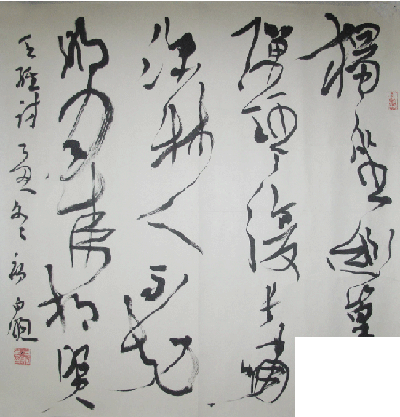 獨坐幽篁
彈琴復長嘯
深林人不知
明月來相照
王維詩丁亥